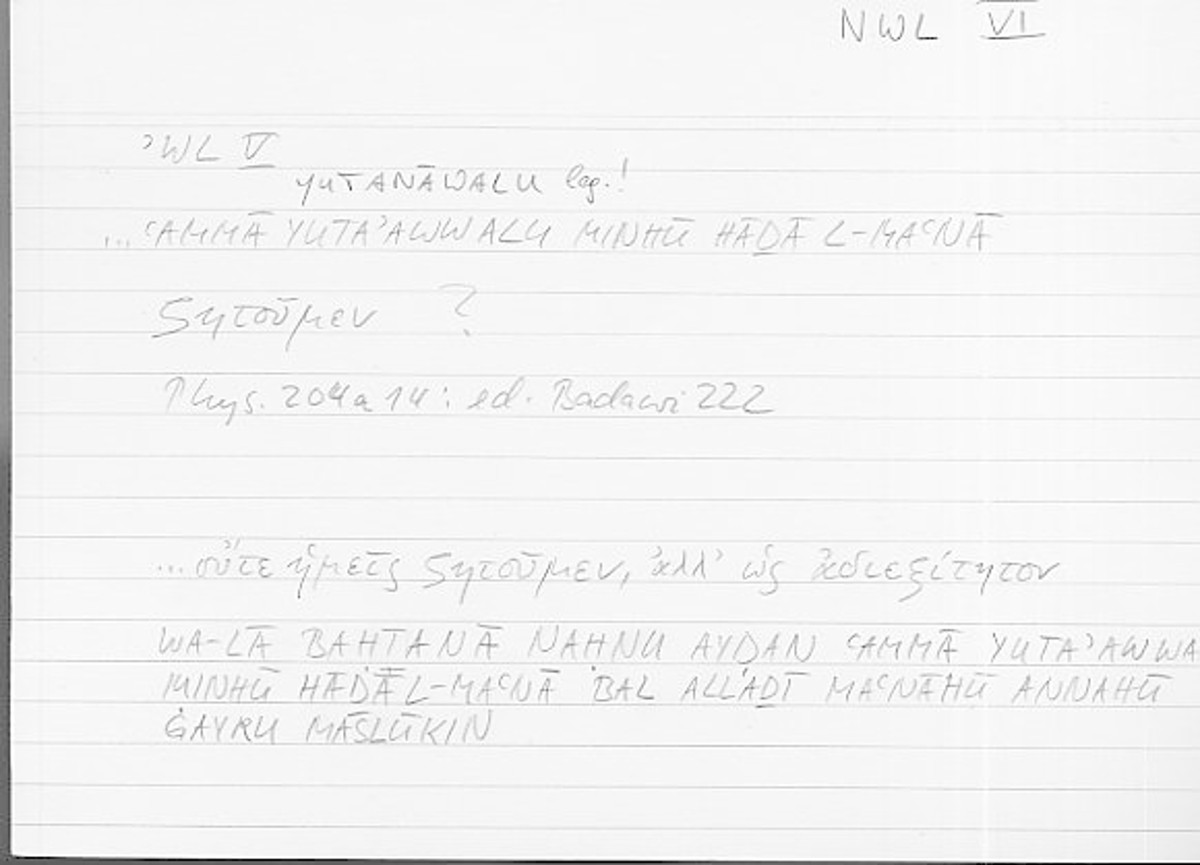 NWL VI
ʾWL V
YUTANĀWALU leg.!
... ʿAMMĀ YUTAʾAWWALU MINHŪ HĀḎĀ L-MAʿNĀ
ζητοῦμεν ?
Phys. 204a 14: ed. Badawi 222
... οὔτε ἡμεῖς ζητοῦμεν, ἀλλ' ὡς ἀδιεξίτητον
WA-LĀ BAḤṮANĀ NAḤNU AYḌAN ʿAMMĀ YUTAʾAWWA
MINHŪ HĀḎĀ L-MAʿNĀ BAL ALLAḎĪ MAʿNĀHŪ ANNAHŪ
ĠAYRU MASLŪKIN